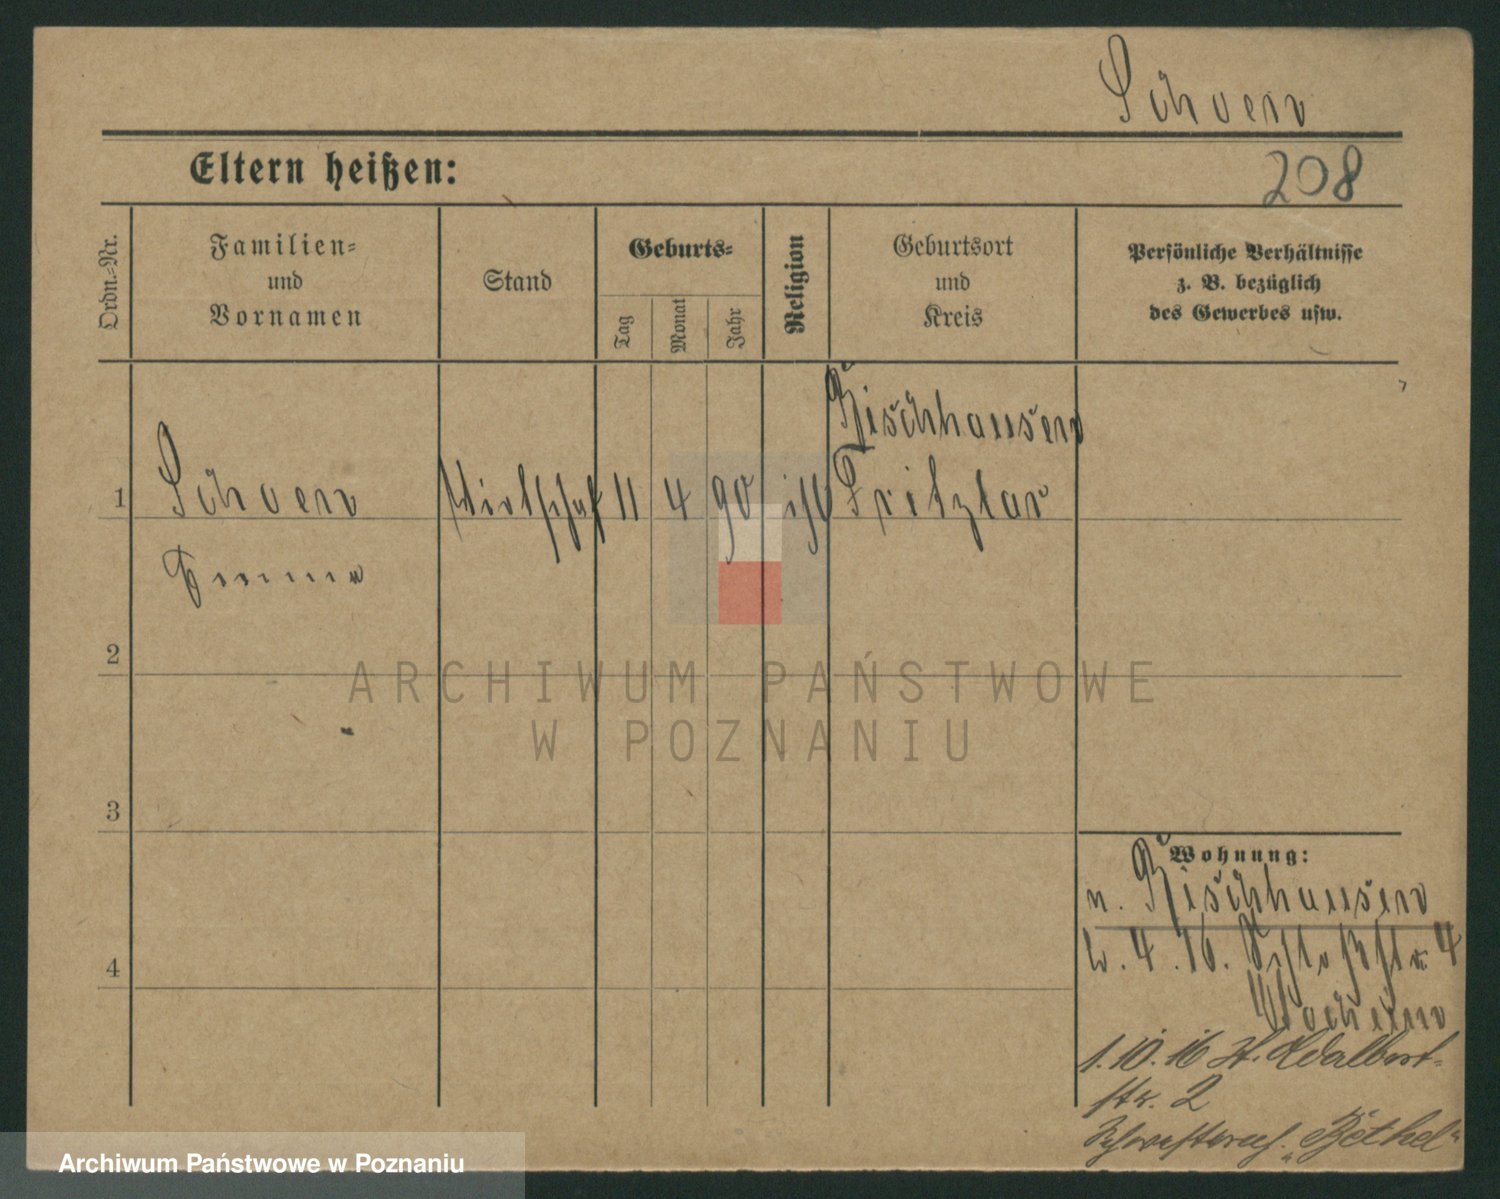 Schoen
Eltern heißen:
208
Ordn.-Nr.
Familien-
und
Vornamen
Stand
Geburts-
Tag
Monat
Jahr
Religion
Geburtsort
und
Kreis
Persönliche Verhältnisse
z. B. bezüglich
des Gewerbes usw.
Bischhausen
1 Schoen Wirtschaf 11 4 90 isr Fritzlar
Emma
2
3
4
Wohnung:
n. Bischhausen
4.16. Schloßstr. 4
1.10.16 St. Adalbert-
str. 2
"Bethel"
ARCHIWUM PAŃSTWOWE
W POZNANIU
Archiwum Państwowe w Poznaniu